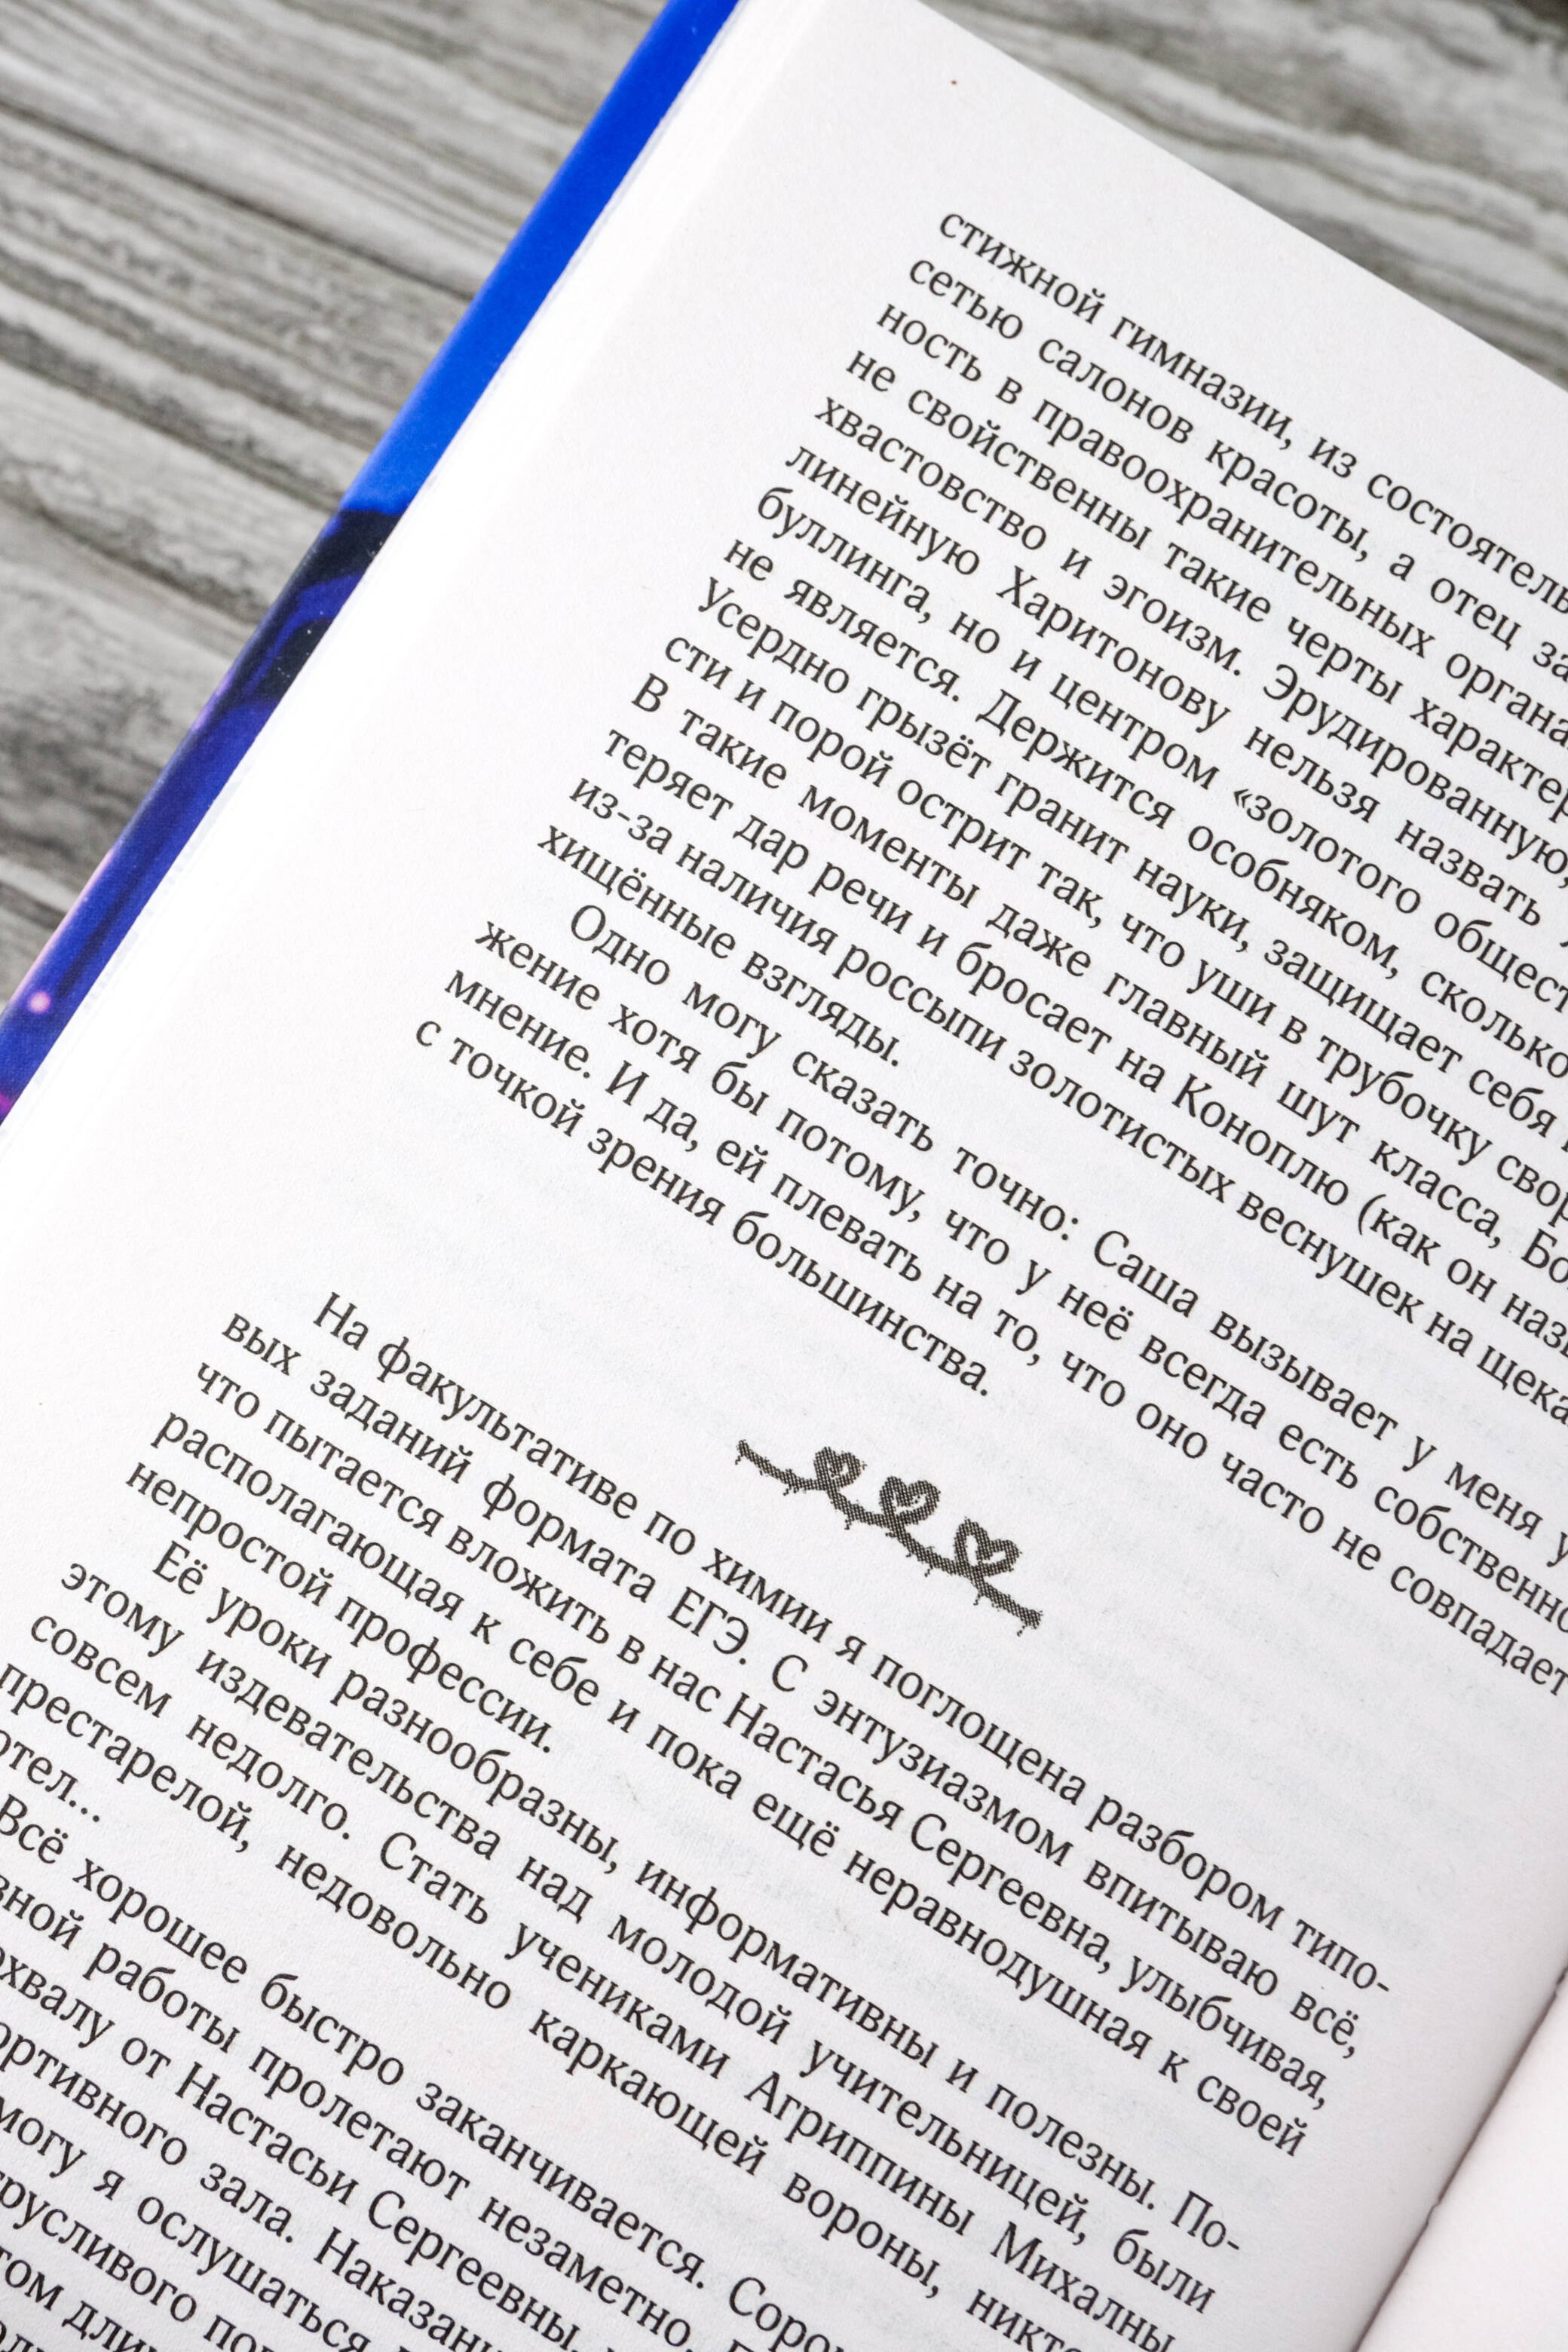 стижной гимназии, из состоятель
сетью салонов красоты, а отец за
ность в правоохранительных органа
не свойственны такие черты характер
хвастовство и эгоизм. Эрудированную,
линейную Харитонову нельзя назвать
буллинга, но и центром «золотого общест
не является. Держится особняком, сколько
усердно грызёт гранит науки, защищает себя
сти и порой острит так, что уши в трубочку свор
В такие моменты даже главный шут класса, Бо
теряет дар речи и бросает на Коноплю (как он назы
из-за наличия россыпи золотистых веснушек на щека
хищённые взгляды.
Одно могу сказать точно: Саша вызывает у меня у
жение хотя бы потому, что у неё всегда есть собственно
мнение. И да, ей плевать на то, что оно часто не совпадает
с точкой зрения большинства.
На факультативе по химии я поглощена разбором типо-
вых заданий формата ЕГЭ. С энтузиазмом впитываю всё,
что пытается вложить в нас Настасья Сергеевна, улыбчивая,
располагающая к себе и пока ещё неравнодушная к своей
непростой профессии.
Её уроки разнообразны, информативны и полезны. По-
этому издевательства над молодой учительницей, были
совсем недолго. Стать учениками Агриппины Михалны
престарелой, недовольно каркающей вороны, никто
отел...
Всё хорошее быстро заканчивается. Соро
вной работы пролетают незаметно.
охвалу от Настасьи Сергеевны,
ортивного зала. Наказани
могу я ослушаться
трусливого
том